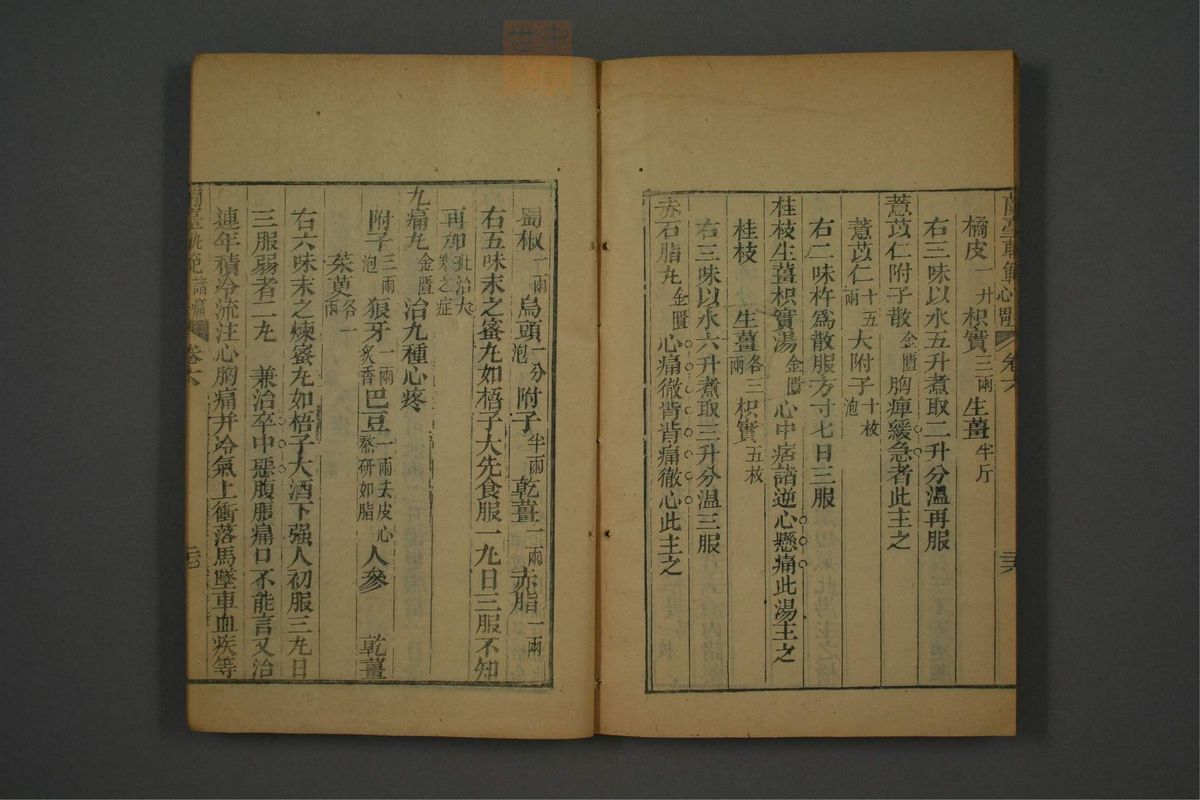 橘皮一升枳實三兩生薑半斤
右三味以水五升煮取二升分溫再服
薏苡仁附子散金匱胸痺緩急者此主之
薏苡仁十五兩大附子十枚泡
右二味杵爲散服方寸匕日三服
桂枝生薑枳實湯金匱心中痞諸逆心懸痛此湯主之
桂枝 生薑各三兩枳實五枚
右三味以水六升煮取三升分溫三服
赤石脂丸金匱心痛徹背背痛徹心此主之
蜀椒一兩烏頭一分泡附子半兩乾薑一兩赤脂一兩
右五味末之蜜丸如梧子大先食服一丸日三服不知
再加此治大寒之症
九痛丸金匱治九種心疼
附子三兩泡狼牙一兩炙香巴豆一兩去皮心熬研如脂人參 乾薑
茱萸各一兩
右六味末之煉蜜丸如梧子大酒下强人初服三丸日
三服弱者二丸 兼治卒中惡腹脹痛口不能言又治
連年積冷流注心胸痛并冷氣上衝落馬墜車血疾等
卷六